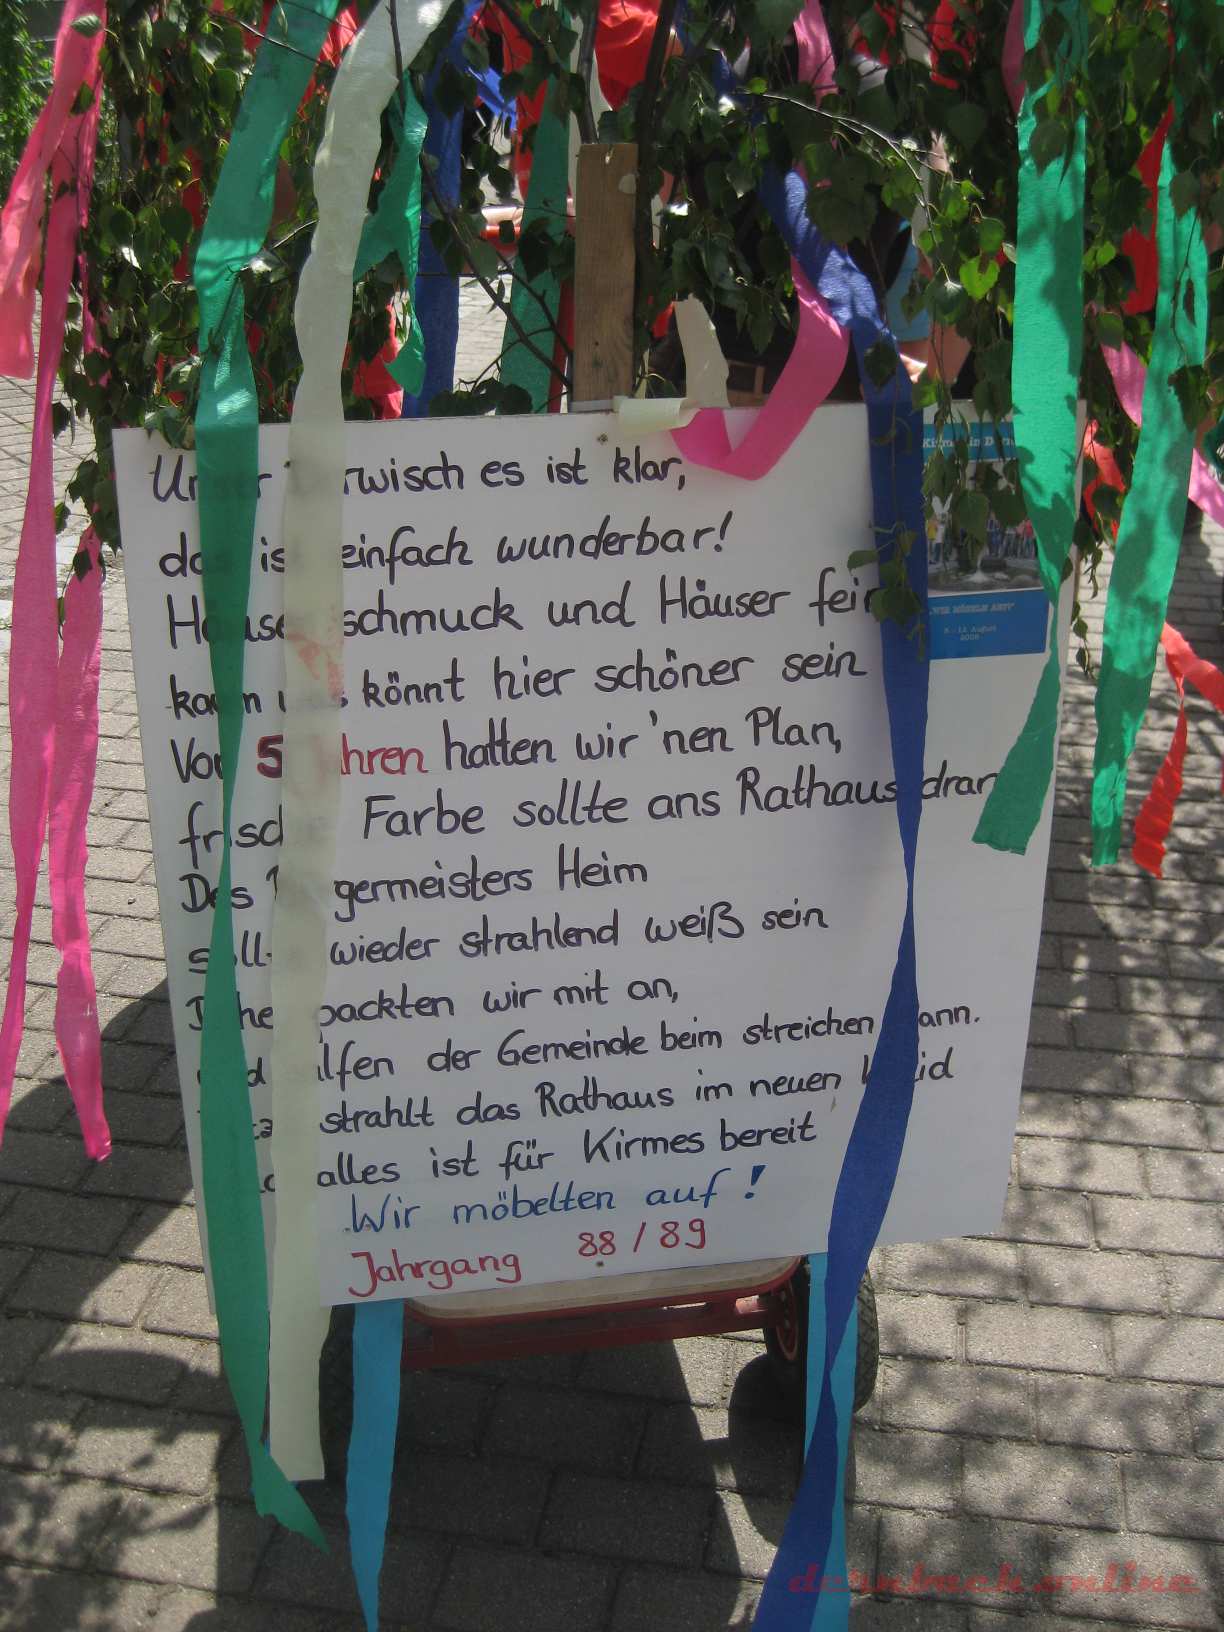 es ist klar,
einfach wunderbar!
schmuck und Häuser fein
könnt hier schöner sein
Vor 5 Jahren hatten wir 'nen Plan,
Farbe sollte ans Rathaus dran
Des Bürgermeisters Heim
sollte wieder strahlend weiß sein
Daher packten wir mit an,
und halfen der Gemeinde beim streichen dann.
strahlt das Rathaus im neuen Kleid
alles ist für Kirmes bereit
Wir möbelten auf!
Jahrgang 88/89
"WIR MÖBELN AUF!"
August
dernbach.online